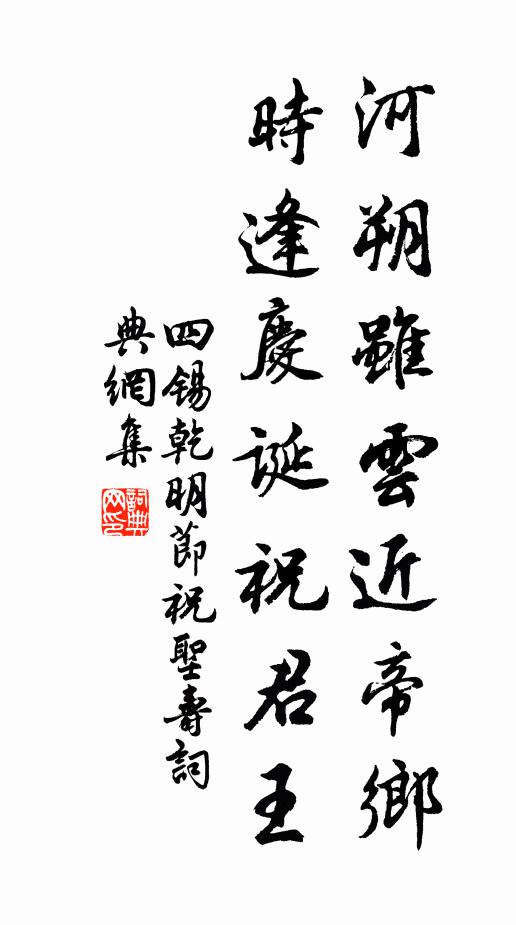 河朔雖雲近帝鄉
時逢慶誕祝君王
四锡乾明節祝聖壽詞
典網集
詞典网印